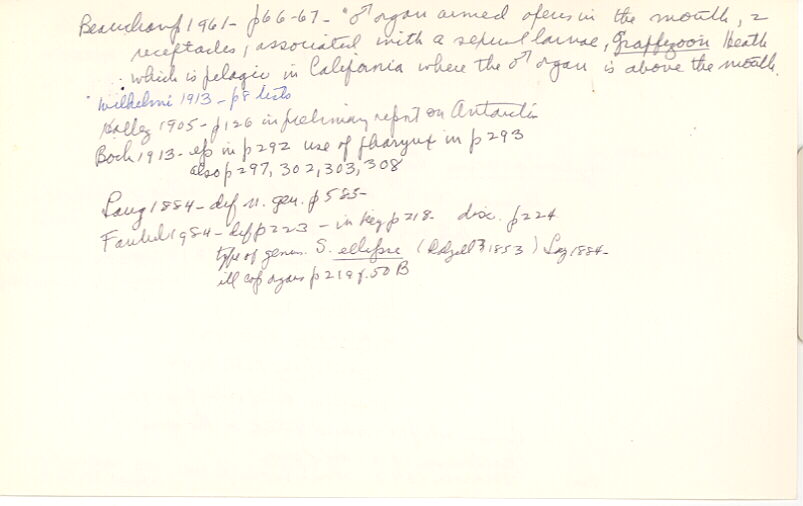 Beauchamp 1961 - p66-67 - "♂ organ armed opens in the mouth, 2
receptacles, associated with a sexual larvae, Graffizoon Heath
which is pelagic in California where the ♂ organ is above the mouth.
Wilhelmi 1913 - p8 lists
Hallez 1905 - p126 in preliminary report on Antarctic
Bock 1913 - ep in p292 use of pharynx in p293
also p297, 302, 303, 308
Lang 1884 - def n. gen. p585
Faubel 1984 - def p223 - in key p218. disc. p224
type of genus. S. ellipse (Dalyell 1853) Lang 1884
ill cop organs p219 f. 50 B